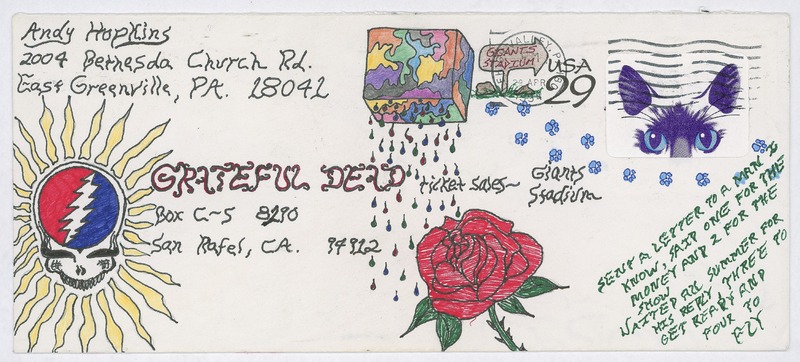 Andy Hopkins
2004 Bethesda Church Rd.
East Greenville, PA. 18041
GIANTS
STADIUM
VALLEY, P
29 APR
USA
29
GRATEFUL DEAD ticket sales~ Giants
Stadium
Box C-S 8290
San Rafel, CA. 94912
SENT A LETTER TO A MAN I
KNOW, SAID ONE FOR THE
MONEY AND 2 FOR THE
SHOW
WAITED ALL SUMMER FOR
HIS REPLY THREE TO
GET READY AND
FOUR TO
FLY